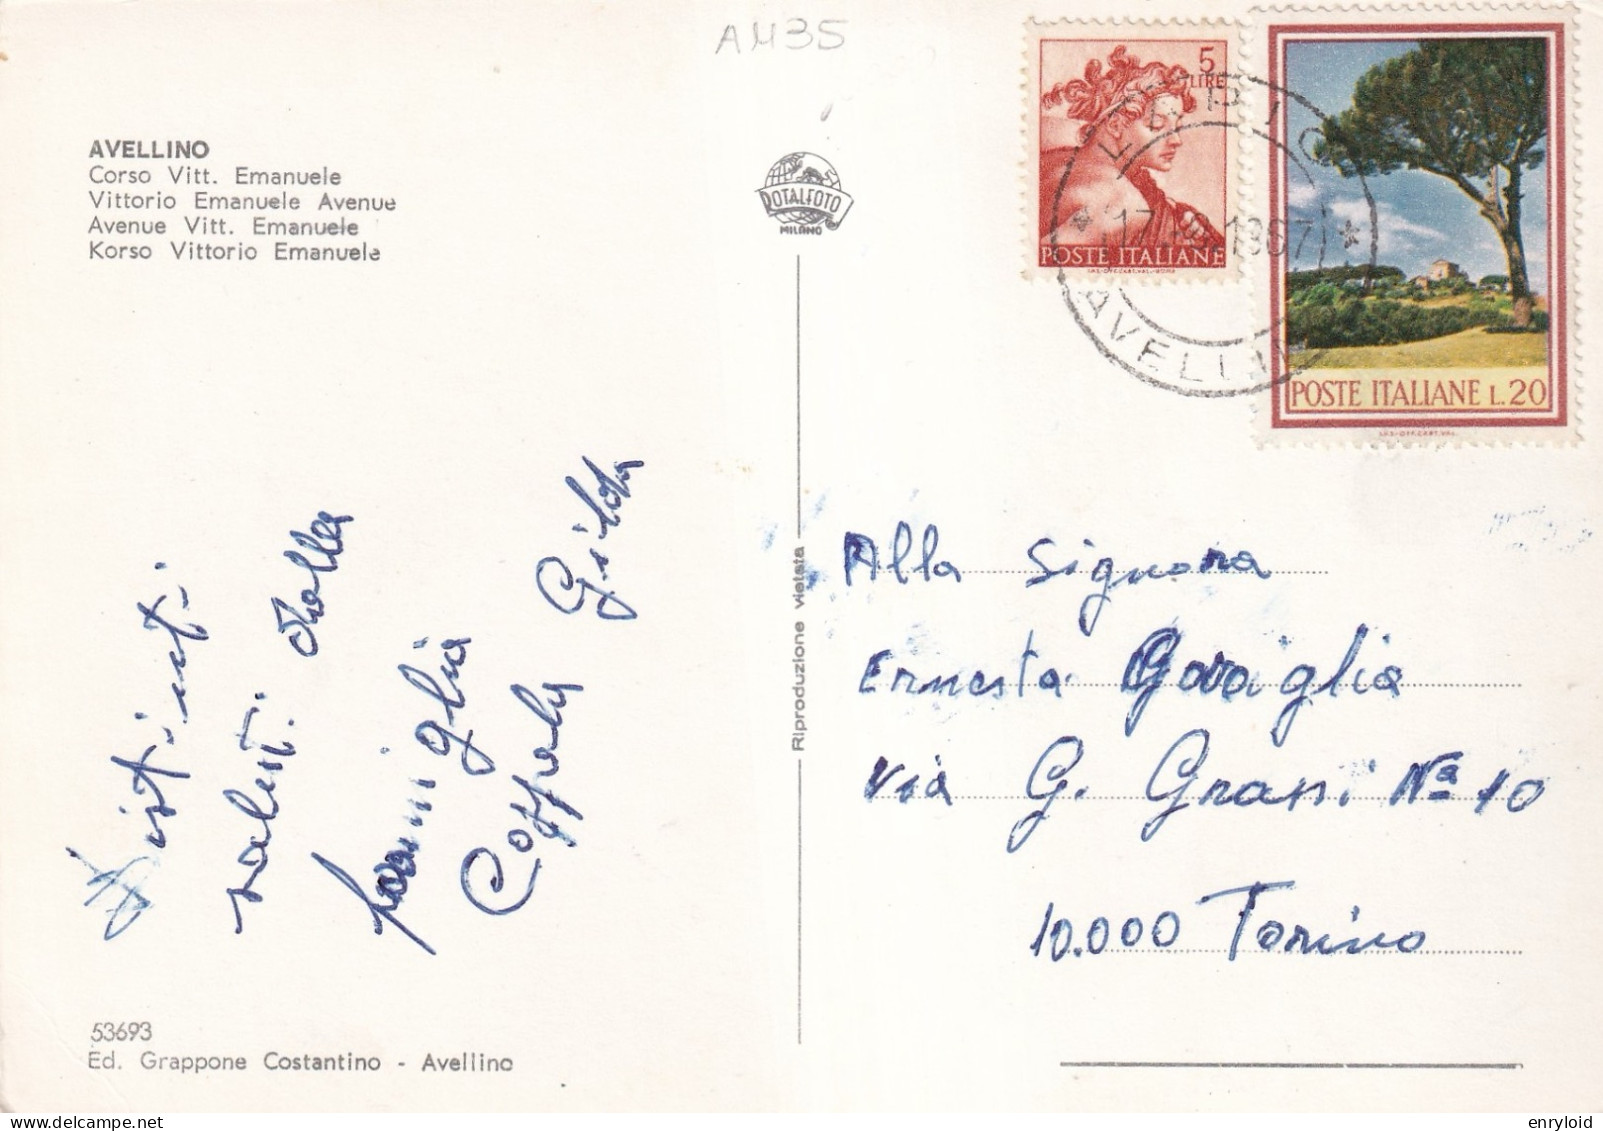 AM35
AVELLINO
Corso Vitt. Emanuele
Vittorio Emanuele Avenue
Avenue Vitt. Emanuele
Korso Vittorio Emanuele
ROTALFOTO
MILANO
5
LIRE
POSTE ITALIANE
POSTE ITALIANE L.20
17 1967
AVELLINO
Distinti
saluti dalla
famiglia
Coppola Gilda
Riproduzione vietata
Alla Signora
Ernesta Gavaglia
Via G. Grassi Nª 10
10.000 Torino
53693
Ed. Grappone Costantino - Avellino
enryloid
delcampe.net